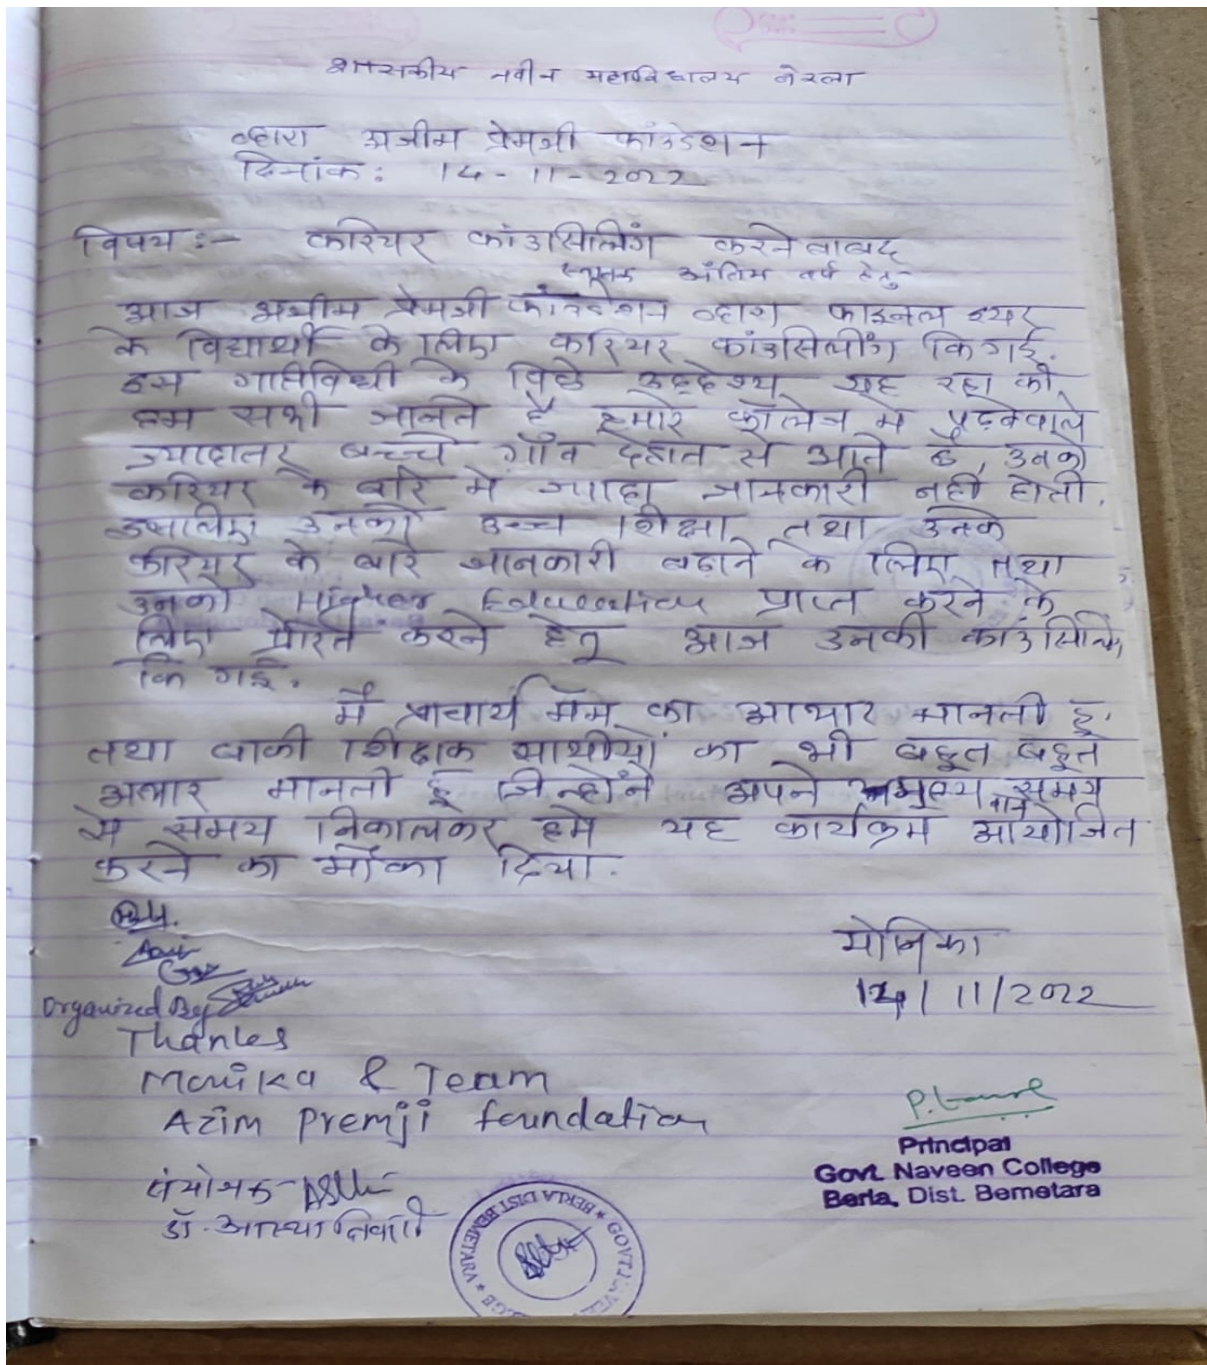 शासकीय नवीन महाविद्यालय बेरला
व्दारा अजीम प्रेमजी फांउडेशन
दिनांक: 14-11-2022
विषय :- करियर कांउसिलिंग करने बाबद्
स्नातक अंतिम वर्ष हेतु
आज अजीम प्रेमजी फांउडेशन व्दारा फाइनल इयर
के विद्यार्थी के लिए करियर कांउसिलींग किगई.
इस गतिविधी के पिछे उद्देश्य यह रहा की
हम सभी जानते है हमारे कॉलेज मे पढ़नेवाले
ज्यादातर बच्चे गाँव देहात से आते है, उनको
करियर के बारे मे ज्यादा जानकारी नही होती.
इसलिए उनको उच्च शिक्षा तथा उनके
करियर के बारे जानकारी बढ़ाने के लिए तथा
उनको Higher Education प्राप्त करने के
लिए प्रेरित करने हेतू आज उनकी कांउसिलिं
कि गई.
मैं प्राचार्य मॅम का आभार मानती हू.
तथा बाकी शिक्षक साथीयों का भी बहूत बहूत
आभार मानती हू जिन्होंने अपने अमुल्य समय
मे समय निकालकर हमे यह कार्यक्रम आयोजित
करने का मौका दिया.
मोनिका
14/11/2022
Organized By
Thanks
Monika & Team
Azim Premji foundation
Principal
Govt. Naveen College
Berla, Dist. Bemetara
संयोजक-
डॉ. आस्था तिवारी
BERLA DIST. BEMETARA